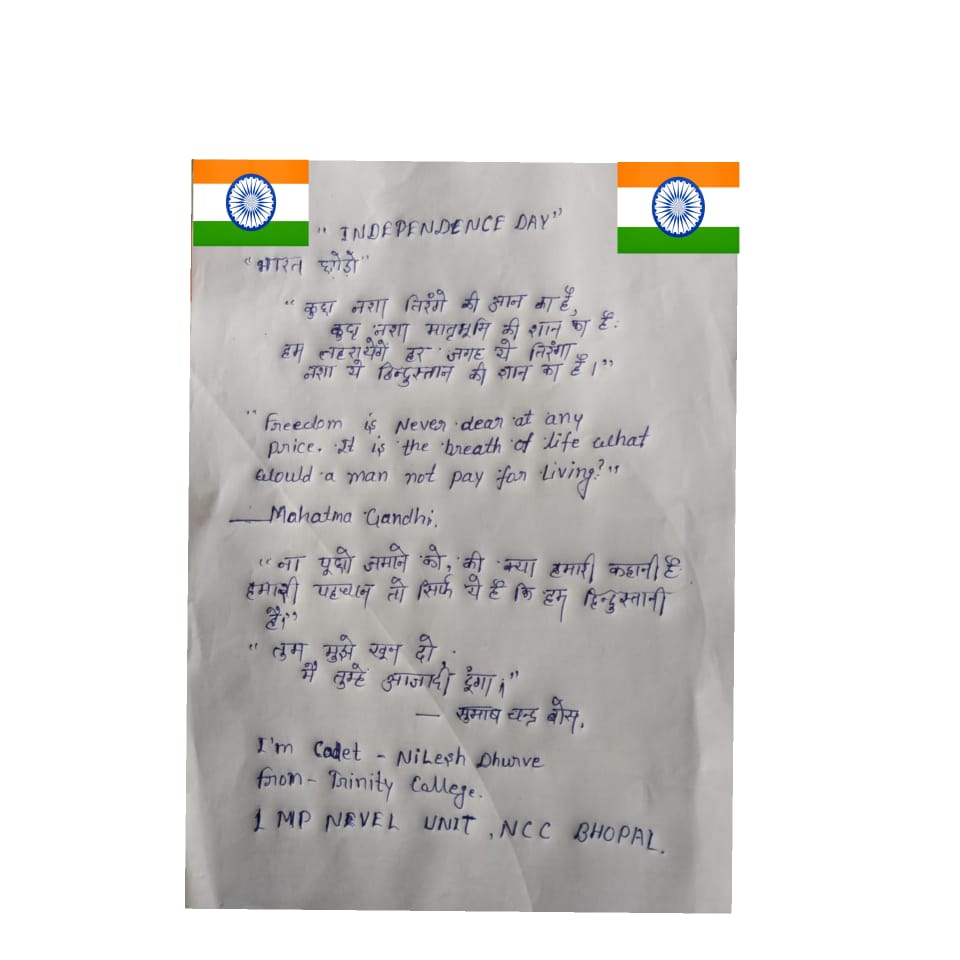 " INDEPENDENCE DAY"
"भारत छोड़ो"
" कुछ नशा तिरंगे की आन का है,
कुछ नशा मातृभूमि की शान का है.
हम लहरायेंगे हर जगह ये तिरंगा
नशा ये हिन्दुस्तान की शान का है।"
"Freedom is Never dear at any
price. It is the breath of life what
would a man not pay for living?"
—Mahatma Gandhi.
"ना पूछो जमाने को, की क्या हमारी कहानी है
हमारी पहचान तो सिर्फ ये है कि हम हिन्दुस्तानी
है।"
" तुम मुझे खून दो,
मैं तुम्हें आजादी दूंगा।"
— सुभाष चन्द्र बोस.
I'm Cadet - Nilesh Dhurve
From - Trinity College.
1 MP NEVEL UNIT, NCC BHOPAL.